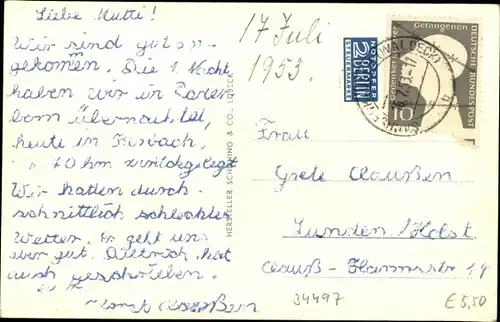 Liebe Mutti!
Wir sind gut an-
gekommen. Die 1. Nacht
haben wir in Pader
born übernachtet,
heute in
70 km zurückgelegt
Wir hatten durch-
schnittlich schlechter
Wetter. Es geht uns
aber gut. Dietrich hat
auch geschrieben.
Claußen
HERSTELLER SCHÖNING & CO., LÜBECK
17 Juli
1953.
2 NOTOPFER
BERLIN
STEUERMARKE
Gefangenen
DEUTSCHE BUNDESPOST
10
(WALDECK)
Frau
Grete Claußen
Lunden / Holst
Claus-Harmsstr 19
34497
€ 5,50